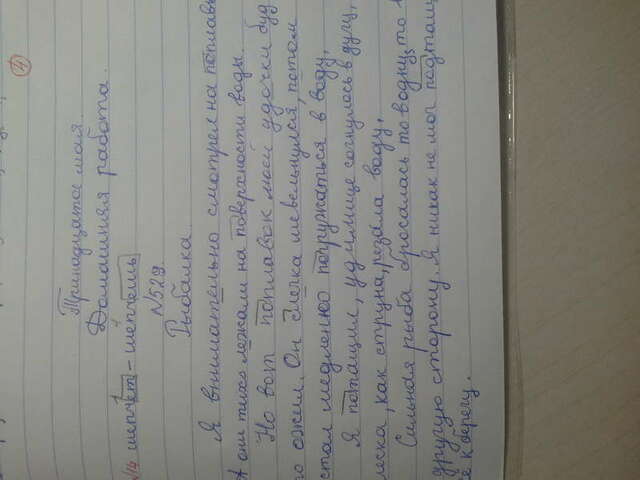 Тринадцатое мая.
Домашняя работа.
шепчет - шепчешь
N529
Рыбалка.
Я внимательно смотрел на поплавк
А они тихо лежали на поверхности воды.
Но вот поплавок моей удочки буд
го ожил. Он слегка шевельнулся, потом
стал медленно погружаться в воду.
Я потащил, удилище согнулось в дугу,
леска, как струна, резала воду.
Сильная рыба бросалась то в одну, то в
другую сторону. Я никак не мог подтащ
её к берегу.